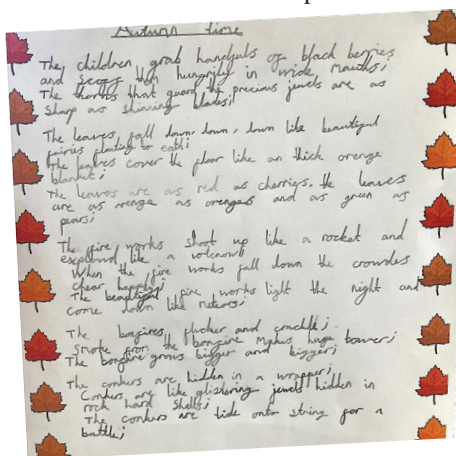 Autumn time
They children grab handfuls of black berries
and scoff them hungrily in wide mouths;
The thorns that guard the precious jewels are as
sharp as shinning blades;
The leaves fall down, down, down like beautiful
fairies floating to eath;
The leaves cover the floor like an thick orenge
blankit;
The leaves are as red as cherries. the leaves
are as orenge as oranges and as green as
pears;
The fire works shoot up like a rocket and
explownd like a volcenow;
When the fire works fall down the crowdes
chear happily;
The beautifull fire works light the night and
come down like meteors;
The bongires flucker and crackle;
Smoke from the bongire makes huge towers;
The bongire grows bigger and bigger;
The conkers are hidden in a wrapper;
Conkers are like glistering jewels hidden in
rock hard shells;
The conkers are tide onto string for a
battle;